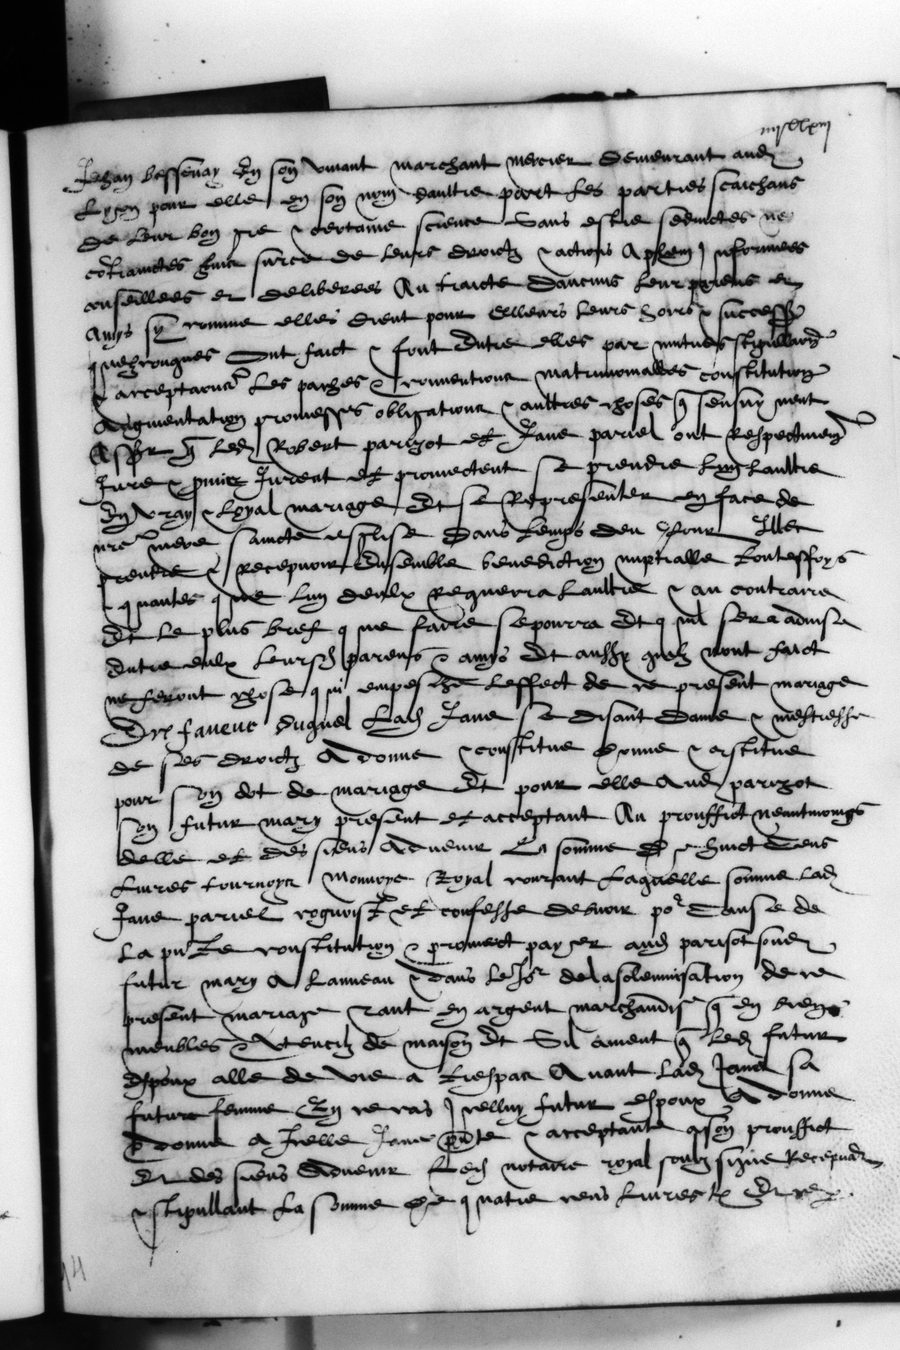 iiijc lxiij
Jehan bessenay En son vivant marchant mercier demeurant aud
Lyon pour elle en son nom daultre part Les parties saichans
de leur bon gre & certaine science Sans estre seduictes ne
cotrainctes sur ce de leurs droictz & actions A plein Informees
conseillees et deliberees Au traicte daucuns leur parens et
Amys sy comme elles dient pour Elles leurs hoirs & success
quelzconques Ont faict & font Entre elles par mutues stipullaons
& acceptaons Les paches & conventions matrimonialles constitution
Augmentation promesses obligations & aultres choses q sensuyvent
Assavr q Led Robert parizot et Jane pariel ont Respectivemt
Jure & promis Jurent et promectent se prendre lung laultre
En vray & loyal mariage Et se Representer en face de
nre mere saincte esglise dans temps deu pour Illec
prendre & recepvoir Ensemble benediction nuptialle touteffoys
& quantes que lun deulx Requerra laultre & au contraire
Et le plus bref que faire se pourra Et quil sera advise
Entre eulx leursd parens & amys Et aussy quilz nont faict
ne feront chose qui empesche leffect de ce present mariage
En faveur duquel Lad Jane se disant dame & mestresse
de ses droictz A donne & constitue donne & cstitue
pour son dot de mariage Et pour elle Aud parizot
son futur mary present et acceptant Au prouffict neantmoings
delle et des siens Advenir La somme de huict Cens
Livres tournoys Monnoye Royal courant Laquelle somme Lad
Jane pariel cognoist et confesse debvoir por Cause de
La pnte constitution & promect payer aud parisot sond
futur mary A Lanneau & dans le Jor de la solennisation de ce
present mariage tant en argent marchandise q en biens
meubles & Utencilz de maison Et Sil avient q Led futur
Espoux alle de vie a trespas Avant Lad Jane sa
future femme En ce cas Icelluy futur espoux A donne
& donne a Icelle Jane pnte & acceptante a son prouffict
Et des siens Advenir Led notaire royal soubz signe Recepvant
& stipullant La somme de quatre cens Livres tz Et ce